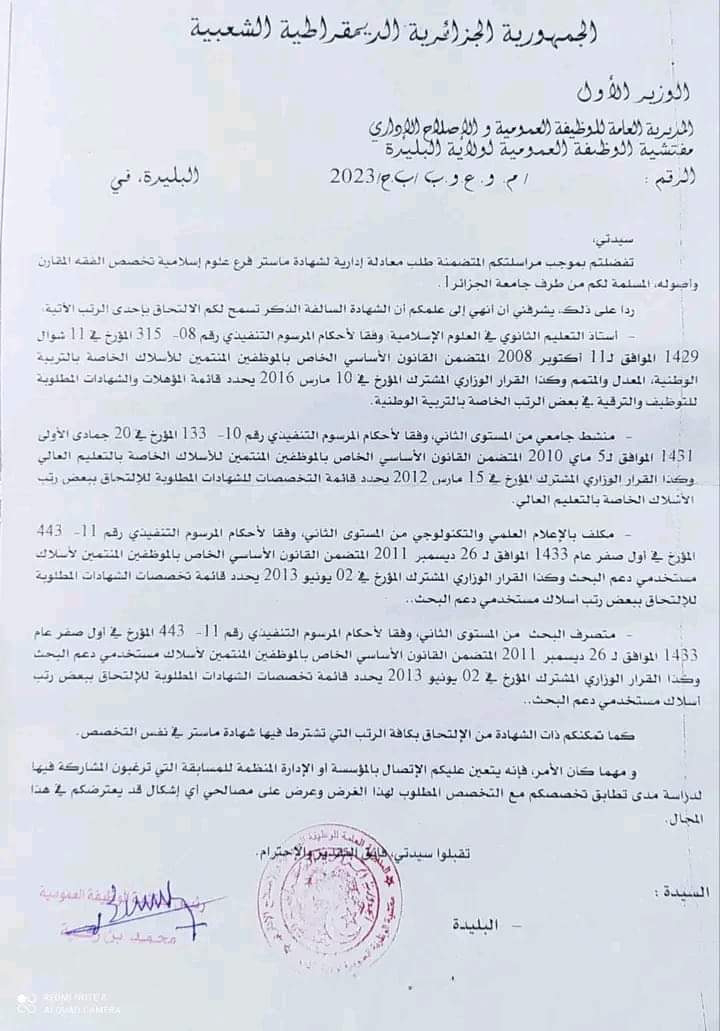 الجمهورية الجزائرية الديمقراطية الشعبية
الوزير الأول
المديرية العامة للوظيفة العمومية و الإصلاح الإداري
مفتشية الوظيفة العمومية لولاية البليدة
الرقم : / م. و. ع و. ب /ب.ح/2023 البليدة، في
سيدتي،
تفضلتم بموجب مراسلتكم المتضمنة طلب معادلة إدارية لشهادة ماستر فرع علوم إسلامية تخصص الفقه المقارن
وأصوله، المسلمة لكم من طرف جامعة الجزائر1.
ردا على ذلك، يشرفني أن أنهي إلى علمكم أن الشهادة السالفة الذكر تسمح لكم الالتحاق بإحدى الرتب الآتية:
- أستاذ التعليم الثانوي في العلوم الإسلامية وفقا لأحكام المرسوم التنفيذي رقم 08- 315 المؤرخ في 11 شوال
1429 الموافق لـ11 أكتوبر 2008 المتضمن القانون الأساسي الخاص بالموظفين المنتمين للأسلاك الخاصة بالتربية
الوطنية، المعدل والمتمم وكذا القرار الوزاري المشترك المؤرخ في 10 مارس 2016 يحدد قائمة المؤهلات والشهادات المطلوبة
للتوظيف والترقية في بعض الرتب الخاصة بالتربية الوطنية.
- منشط جامعي من المستوى الثاني، وفقا لأحكام المرسوم التنفيذي رقم 10- 133 المؤرخ في 20 جمادى الأولى
1431 الموافق لـ5 ماي 2010 المتضمن القانون الأساسي الخاص بالموظفين المنتمين للأسلاك الخاصة بالتعليم العالي
وكذا القرار الوزاري المشترك المؤرخ في 15 مارس 2012 يحدد قائمة التخصصات للشهادات المطلوبة للإلتحاق ببعض رتب
الأسلاك الخاصة بالتعليم العالي.
- مكلف بالإعلام العلمي والتكنولوجي من المستوى الثاني، وفقا لأحكام المرسوم التنفيذي رقم 11- 443
المؤرخ في أول صفر عام 1433 الموافق لـ 26 ديسمبر 2011 المتضمن القانون الأساسي الخاص بالموظفين المنتمين لأسلاك
مستخدمي دعم البحث وكذا القرار الوزاري المشترك المؤرخ في 02 يونيو 2013 يحدد قائمة تخصصات الشهادات المطلوبة
للإلتحاق ببعض رتب أسلاك مستخدمي دعم البحث..
- متصرف البحث من المستوى الثاني، وفقا لأحكام المرسوم التنفيذي رقم 11- 443 المؤرخ في أول صفر عام
1433 الموافق لـ 26 ديسمبر 2011 المتضمن القانون الأساسي الخاص بالموظفين المنتمين لأسلاك مستخدمي دعم البحث
وكذا القرار الوزاري المشترك المؤرخ في 02 يونيو 2013 يحدد قائمة تخصصات الشهادات المطلوبة للإلتحاق ببعض رتب
أسلاك مستخدمي دعم البحث..
كما تمكنكم ذات الشهادة من الإلتحاق بكافة الرتب التي تشترط فيها شهادة ماستر في نفس التخصص.
و مهما كان الأمر، فإنه يتعين عليكم الإتصال بالمؤسسة أو الإدارة المنظمة للمسابقة التي ترغبون المشاركة فيها
لدراسة مدى تطابق تخصصكم مع التخصص المطلوب لهذا الغرض وعرض على مصالحي أي إشكال قد يعترضكم في هذا
المجال.
تقبلوا سيدتي، فائق التقدير والإحترام.
السيدة :
- البليدة
الوظيفة العمومية
محمد بن
REDMI NOTE 8
AI QUAD CAMERA